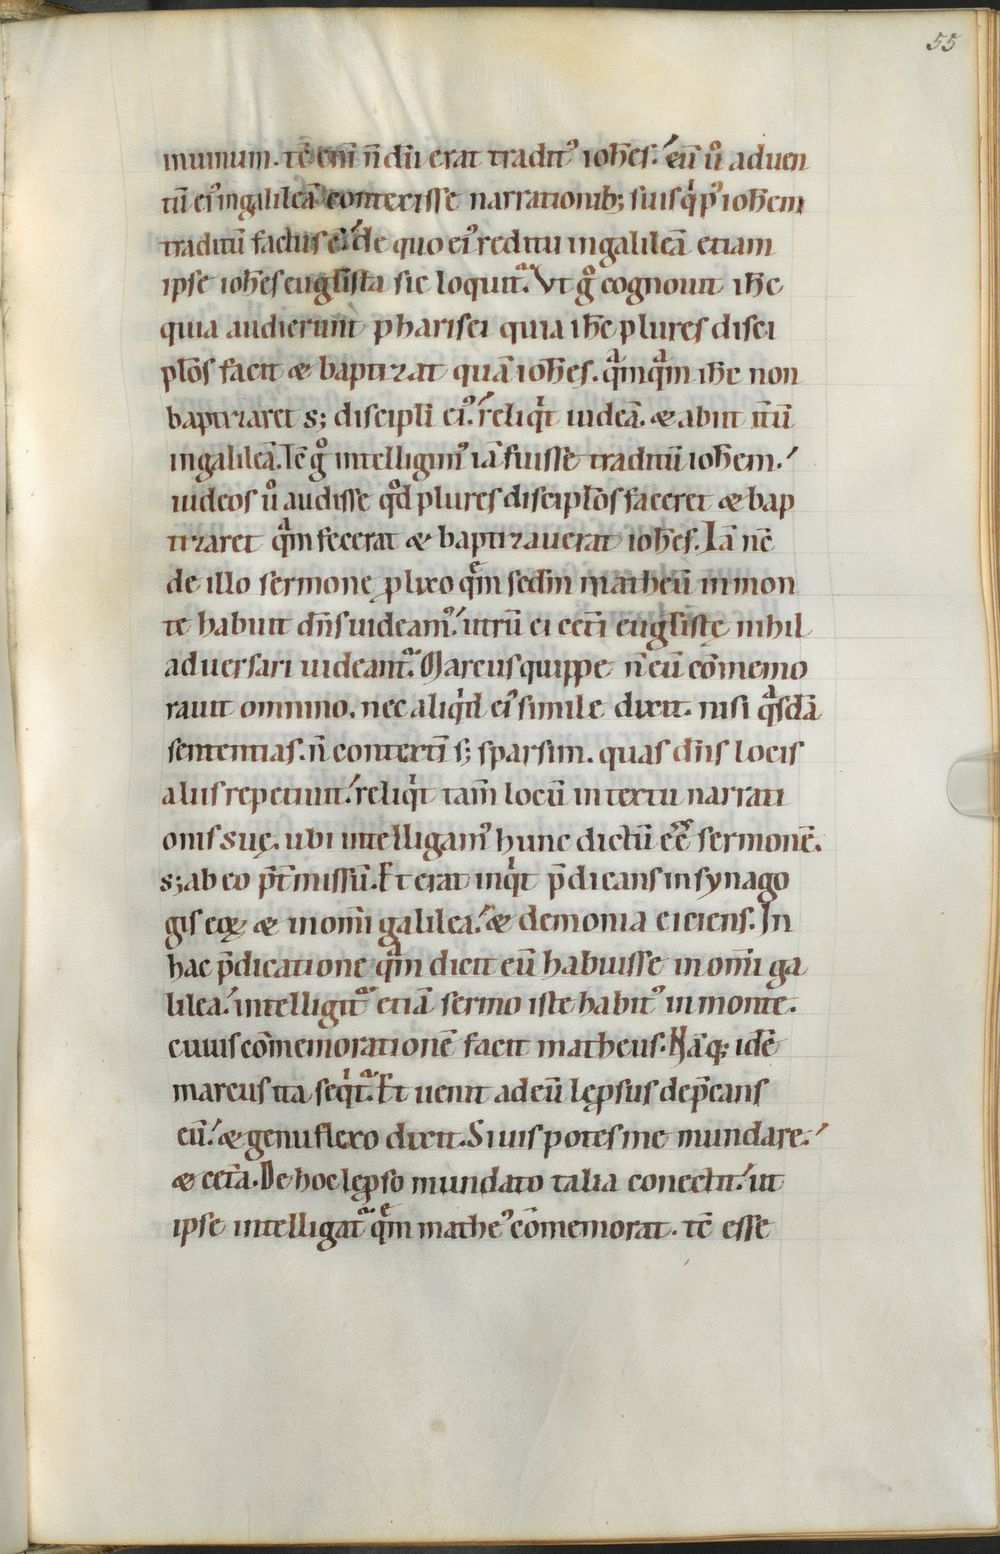 55
muinum. tē eni̅ n̅ dū erat tradit᾿ ioh̅es.᾿ eū u̅o aduen
tū ei᾿ ingalileā contexisse narrationib; suis q̅ p᾿ ioh̅em
traditū factus ē.᾿ de quo ei᾿ reditu ingalileā etiam
ipse ioh̅es eug̅lista sic loquit᾿. Vt gͦ cognouit ih̅c
quia audierunt pharisei quia ih̅c plures disci
plo̅s facit & baptizat quā ioh̅es. qͣmqͣm ih̅c non
baptizaret s; discipli̅ ei᾿.᾿ reliqͥt iudeā. & abiit it̅ū
ingalileā. Tē gͦ intelligim᾿ iā fuisse traditū ioh̅em.᾿
iudeos u̅o audisse qͦd plures disciplo̅s faceret & bap
tizaret qͣm fecerat & baptizauerat ioh̅es. Iā nē
de illo sermone ꝓlixo qͤm sed̅m matheū in mon
te habuit dn̅s uideam᾿.᾿ utrū ei cet̅i eug̅listę nihil
aduersari uideant᾿. Marcus quippe n̅ eū co̅memo
rauit omnino. nec aliqͥd ei᾿ simile dixit. nisi qͣsdā
sententias. n̅ contexti̅ s; sparsim. quas dn̅s locis
aliis repetiuit.᾿ reliqͥt tam̅ locū in textu narrati
onis suę. ubi intelligam᾿ hunc dictū ee̅ sermonē.
s; ab eo p̅t̅missū. Et erat inqͥt p̅dicans in synago
gis eoꝝ & in omi̅ galilea.᾿ & demonia eiciens. In
hac p̅dicatione qͣm dicit eū habuisse in omi̅ ga
lilea.᾿ intelligit᾿ etiā sermo iste habit᾿ in monte.
cuius co̅memorationē facit matheus. Nāq; idē
marcus ita seqͥt᾿. Et uenit ad eū lep̱sus dep̅cans
eū.᾿ & genu flexo dixit. Si uis potes me mundare.᾿
& cet̅a. De hoc lep̱so mundato talia conectit.᾿ ut
ipse intelligat᾿ qͤm mathe᾿ co̅memorat. tē esse